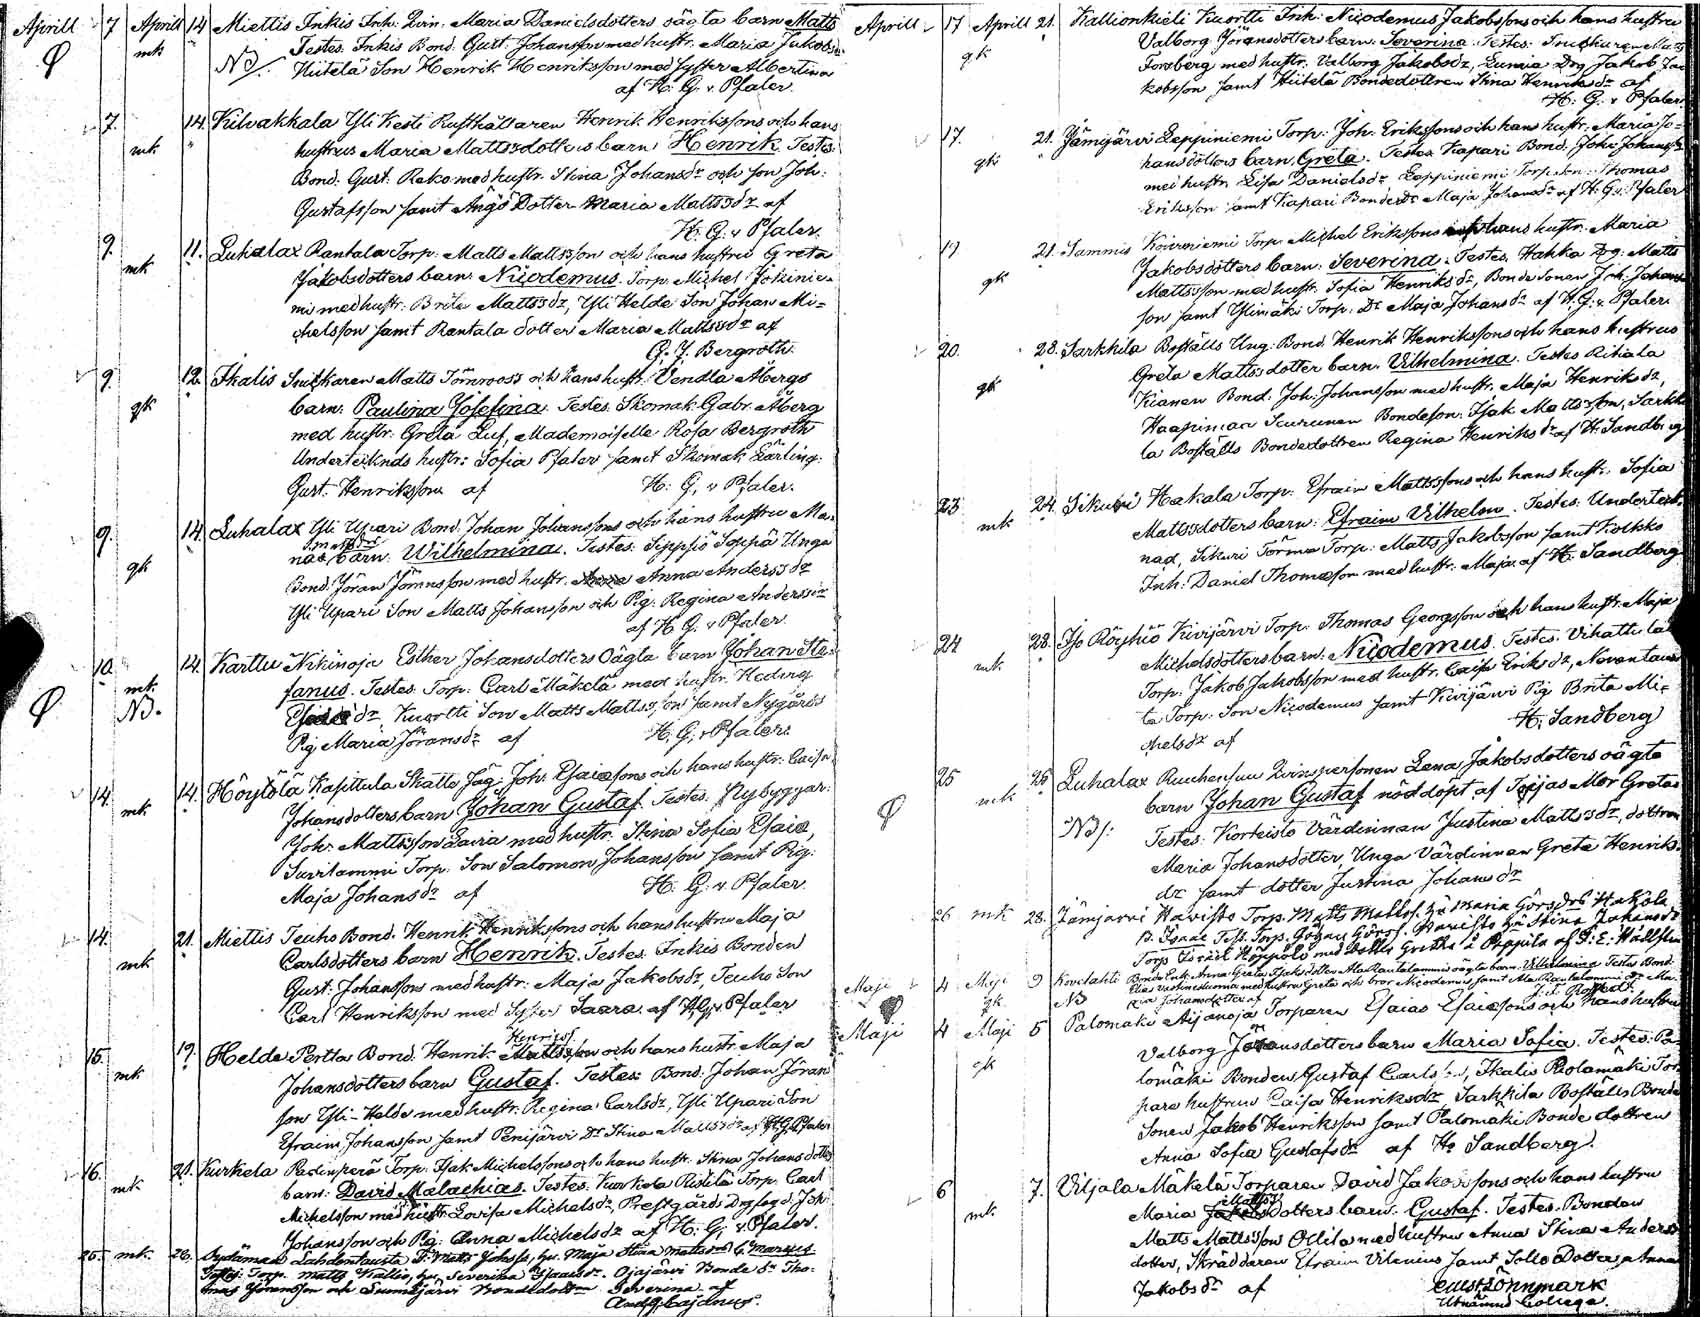 Aprill 7 Aprill 14 Miettis Inkis Inh: Qvn. Maria Danielsdotters oägta barn Matts
mk Testes. Inkis Bond. Gust. Johansson med hustr. Maria Jakobsdr
NB/. Hiitelä Son Henrik Henriksson med syster Albertina
af H: G. v Pfaler.
7. 14. Kilvakkala Yli Kesti Rusthållaren Henrik Henrikssons och hans
mk hustrus Maria Mattsdotters barn Henrik Testes:
Bond: Gust: Rako med hustr. Stina Johansdr och son Joh:
Gustafsson samt Dotter Maria Mattsdr af
H. G. v Pfaler.
9. 11. Luhalax Rantala Torp: Matts Mattsson och hans hustru Greta
mk Jakobsdotters barn: Nicodemus. Torp: Michel Jokinie-
mi med hustr: Brita Mattsdr, Yli Helde Son Johan Mi-
chelsson samt Rantala dotter Maria Mattsdr af
G. J. Bergroth.
9. 12. Ikalis Snickaren Matts Törnroos's och hans hustr. Vendla Åbergs
gk barn: Paulina Josefina. Testes. Skomak: Gabr. Åberg
med hustr: Greta Mademoiselle Rosa Bergroth
Undertecknds hustr: Sofia Pfaler samt Skomak: Lärling:
Gust. Henriksson af H: G. v Pfaler.
9. 14. Luhalax Yli Upari Bond. Johan Johanssons och hans hustru Ma-
gk barn: Wilhelmina. Testes: Sippiö Soppä Unga
Bond. Jöran Jöransson med hustr. Anna Andersdr
Yli Upari Son Matts Johansson och Pig: Regina Andersdr
af H. G. v Pfaler
10. 14. Karttu Nikinoja Esther Johansdotters Oägta barn Johan Ste-
mk. fanus. Testes. Torp: Carl Mäkelä med hustr. Hedvig
NB. Kuortti Son Matts Mattsson samt Nygårds
Pig Maria Jöransdr af H: G. v Pfaler.
14. 14. Höytölä Kapittula Skatts Joh: Esaiassons och hans hustr: Caisa
mk Johansdotters barn Johan Gustaf. Testes. Nybyggar:
Joh: Mattsson Laira med hustr. Stina Sofia Esaiæ,
Surilammi Torp: Son Salomon Johansson samt Pig:
Maja Johansdr af H: G. v Pfaler
14. 21. Miettis Teuho Bond. Henrik Henrikssons och hans hustru Maja
mk Carlsdotters barn Henrik. Testes. Inkis Bonden
Gust: Johanssons med hustr: Maja Jakobsdr, Teuho Son
Carl Henriksson med Syster Saara af H.G. v Pfaler
15. 19. Helde Pertta Bond. Henrik Henrikss. och hans hustr. Maja
mk Johansdotters barn Gustaf. Testes: Bond. Johan Jöran
son Yli-Helde med hustr. Regina Carlsdr, Yli Upari Son
Efraim Johansson samt Penijärvi Dr Stina Mattsdr af H.G. v Pfaler
16. 21. Kurkela Torp. Isak Michelssons och hans hustr. Stina Johansdotters
mk barn: David Malachias. Testes. Kurkela Torp. Carl
Michelsson med hustr. Lovisa Michelsdr, Prestgårds Joh.
Johansson och Pig: Anna Michelsdr af H. G. v Pfaler.
25. mk. 26. Sydänmaa Lahdentausta T: Matts Johss, hu. Maja Stina Mattsd. b: Marcus
Testes: Torp. Matts Kallio, hu. Severina Isaacsdr. Ojajärvi Bonde Sn Tho-
mas Jöransson och Sumijärvi Bondedottr Severina af
And. G. Cajanus.
Aprill 17 Aprill 21. Kallionkieli Kuortti Inh: Nicodemus Jakobssons och hans hustru
gk Valborg Jöransdotters barn: Severina. Testes: Snickaren Matts
Forsberg med hustr. Valborg Jakobsdr, Drg Jakob Ja-
kobsson samt Hiitelä Bondedottren Stina Henriksdr af
H. G. v Pfaler.
17. 21. Jämijärvi Leppiniemi Torp: Joh: Erikssons och hans hustr: Maria Jo-
gk hansdotters barn: Greta. Testes. Kapari Bond. Joh: Johansson
med hustr. Lisa Danielsdr Leppiniemi Torp. Son: Thomas
Eriksson samt Kapari Bonde Dr Maja Johansdr af H. G. v Pfaler
19. 21. Sammis Koivuniemi Torp. Michel Erikssons och hans hustr: Maria
gk Jakobsdotters barn: Severina. Testes. Hakka Drg: Matts
Mattsson med hustr. Sofia Henriksdr, Bonde Sonen Joh. Johans
son samt Ylimäki Torp. Dr Maja Johansdr af H. G. v. Pfaler.
20. 28. Sarkkila Boställs Ung: Bond. Henrik Henrikssons och hans hustrus
gk Greta Mattsdotter barn: Vilhelmina. Testes Ritiala
Kianen Bond. Joh: Johansson med hustr. Maja Henriksdr,
Haapimaa Seurunen Bondeson: Isak Mattsson, Sarkki-
la Boställs Bondedottren Regina Henriksdr af H: Sandberg
23 24. Sikuri Hakala Torp: Efraim Mattssons och hans hustr. Sofia
mk Mattsdotters barn: Efraim Vilhelm. Testes: Underteck-
nad, Sikuri Törmä Torp: Matts Jakobsson samt Kolkko
Inh: Daniel Thomasson med hustr: Maja af H: Sandberg
24 28. Iso Röyhiö Kivijärvi Torp: Thomas Georgsson och hans hustr. Maja
mk. Michelsdotters barn: Nicodemus. Testes. Vihattula
Torp: Jakob Jakobsson med hustr. Caisa Eriksdr, Nevantaus-
ta Torp: Son Nicodemus samt Kivijärvi Pig Brita Mi-
chelsdr af H: Sandberg
25 26 Luhalax Ruuhensuu Qvinspersonen Lena Jakobsdotters oägta
mk barn Johan Gustaf nöddöpt af Toijas Mor Greta
NB/: Testes: Korteisto Värdinnan Justina Mattsdr, dottren
Maria Johansdotter, Unga Värdinnan Greta Henriks-
dr samt dotter Justina Johansdr
26 mk 28. Jämijärvi Havisto Torp. Matts Mattss. hu Maria Görsdr Hakola
b. Isaac Test. Torp. Görss. Havisto hu Stina Johansdr
Torp. Israel Hoppolo med dotter Gretha i Peppula af
Maji 4 Maji 9 Kovelahti Bonde Enk. Anna Greta Isaksdotter Ala Rautalammi oägta barn: Vilhelmina Testes Bond:
gk NB Elias med hustru Greta och bror Nicodemus samt Ala Rautalammi Dr Ma-
ria Johansdotter af
Maji 4 Maji 5 Palomäki Aijänoja Torparen Esaias Esaiæssons och hans hustru
gk Valborg Johansdotters barn Maria Sofia. Testes: Pa-
lomäki Bonden Gustaf Carlsson, Ikalis Tor-
pare hustrun Caisa Henriksdr Sarkkila Boställs Bonde
Sonen Jakob Henriksson samt Palomäki Bonde dottren
Anna Sofia Gustafsdr af H: Sandberg.
6 7. Viljala Mäkelä Torparen David Jakobssons och hans hustru
mk Maria Mattsdotters barn: Gustaf. Testes. Bonden
Matts Mattsson Ollila med hustru Anna Stina Anders
dotter, Skräddaren Efraim Vilenius samt Sollo Dotter Anna
Jakobsdr af Gust. Lönnmark
Utnämnd Collega.